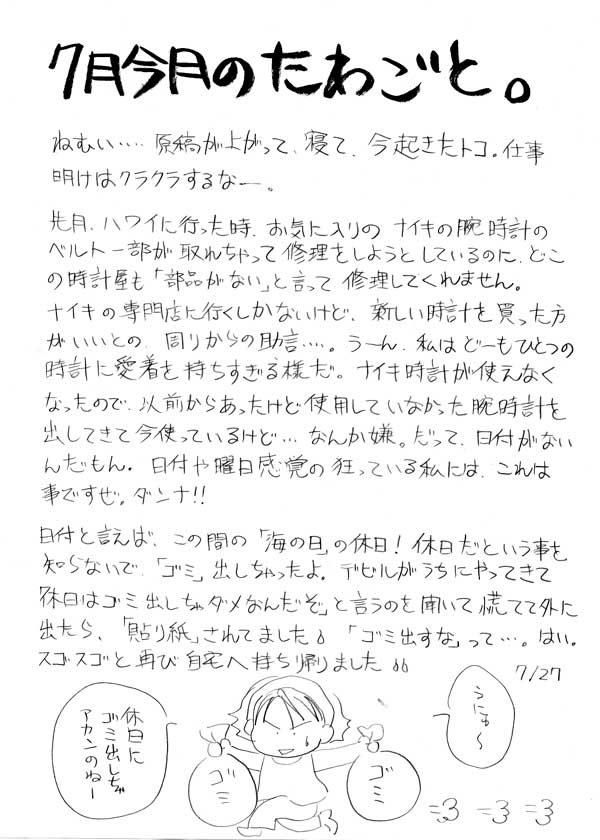 7月今月のたわごと。
ねむい‥‥ 原稿が上がって、寝て、今起きたトコ。仕事
明けはクラクラするなー。
先月、ハワイに行った時、お気に入りの ナイキの腕時計の
ベルト一部が 取れちゃって 修理をしようとしているのに、どこ
の時計屋も「部品がない」と言って 修理してくれません。
ナイキの専門店に行くしかないけど、新しい時計を買った方
がいいとの、周りからの助言‥‥。うーん、私はどーもひとつの
時計に愛着を持ちすぎる様だ。ナイキ時計が使えなく
なったので、以前からあったけど使用していなかった腕時計を
出してきて今使っているけど… なんか嫌。だって、日付がない
んだもん。日付や曜日感覚の狂っている私には、これは
事ですぜ。ダンナ!!
日付と言えば、この間の「海の日」の休日! 休日だという事を
知らないで、「ゴミ」出しちゃったよ。デビルがうちにやってきて
「休日はゴミ出しちゃダメなんだぞ」と言うのを聞いて慌てて外に
出たら、「貼り紙」されてました。「ゴミ出すな」って…。はい。
スゴスゴと再び自宅へ持ち帰りました
7/27
うにゅ〜
休日に
ゴミ出しちゃ
アカンのねー
ゴミ
ゴミ